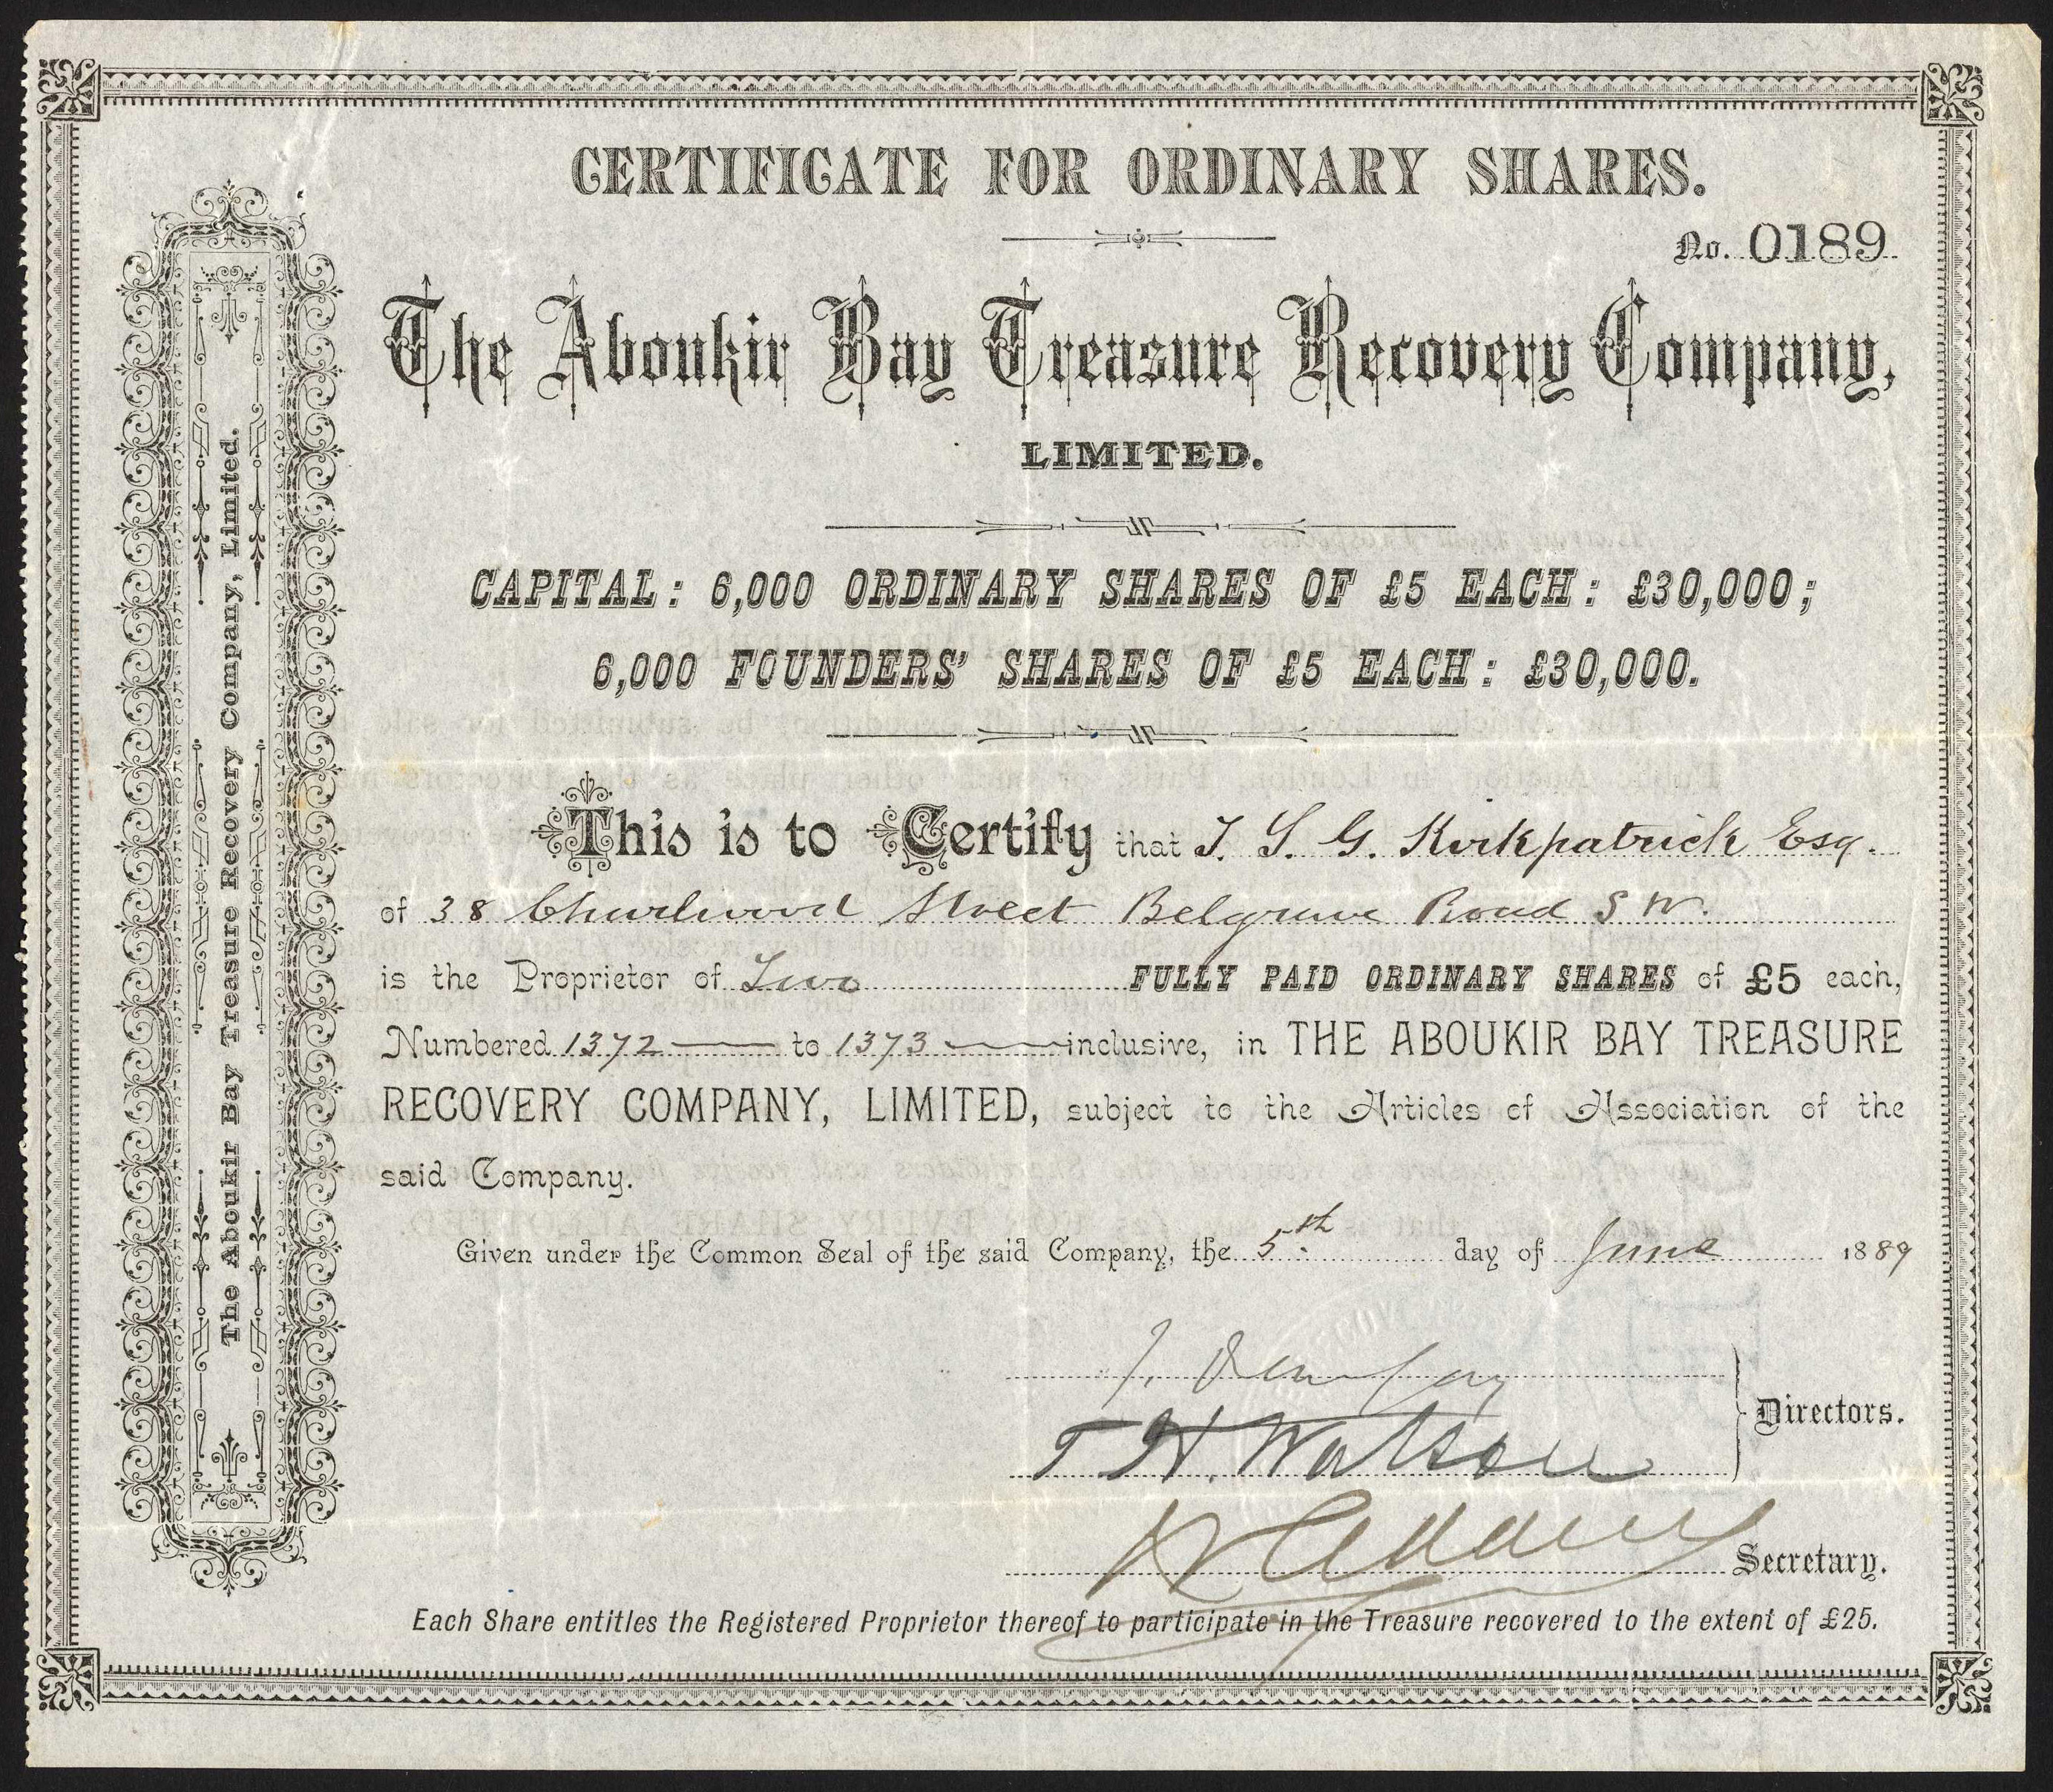 CERTIFICATE FOR ORDINARY SHARES.
No. 0189
The Aboukir Bay Treasure Recovery Company,
LIMITED.
CAPITAL: 6,000 ORDINARY SHARES OF £5 EACH: £30,000;
6,000 FOUNDERS' SHARES OF £5 EACH: £30,000.
This is to Certify that T. S. G. Kirkpatrick Esq.
of 38 Churlwood Street Belgrave Road S W.
is the Proprietor of Two FULLY PAID ORDINARY SHARES of £5 each,
Numbered 1372 to 1373 inclusive, in THE ABOUKIR BAY TREASURE
RECOVERY COMPANY, LIMITED, subject to the Articles of Association of the
said Company.
Given under the Common Seal of the said Company, the 5th day of June 1889
T H. Watson
Directors.
Secretary.
Each Share entitles the Registered Proprietor thereof to participate in the Treasure recovered to the extent of £25.
The Aboukir Bay Treasure Recovery Company, Limited.